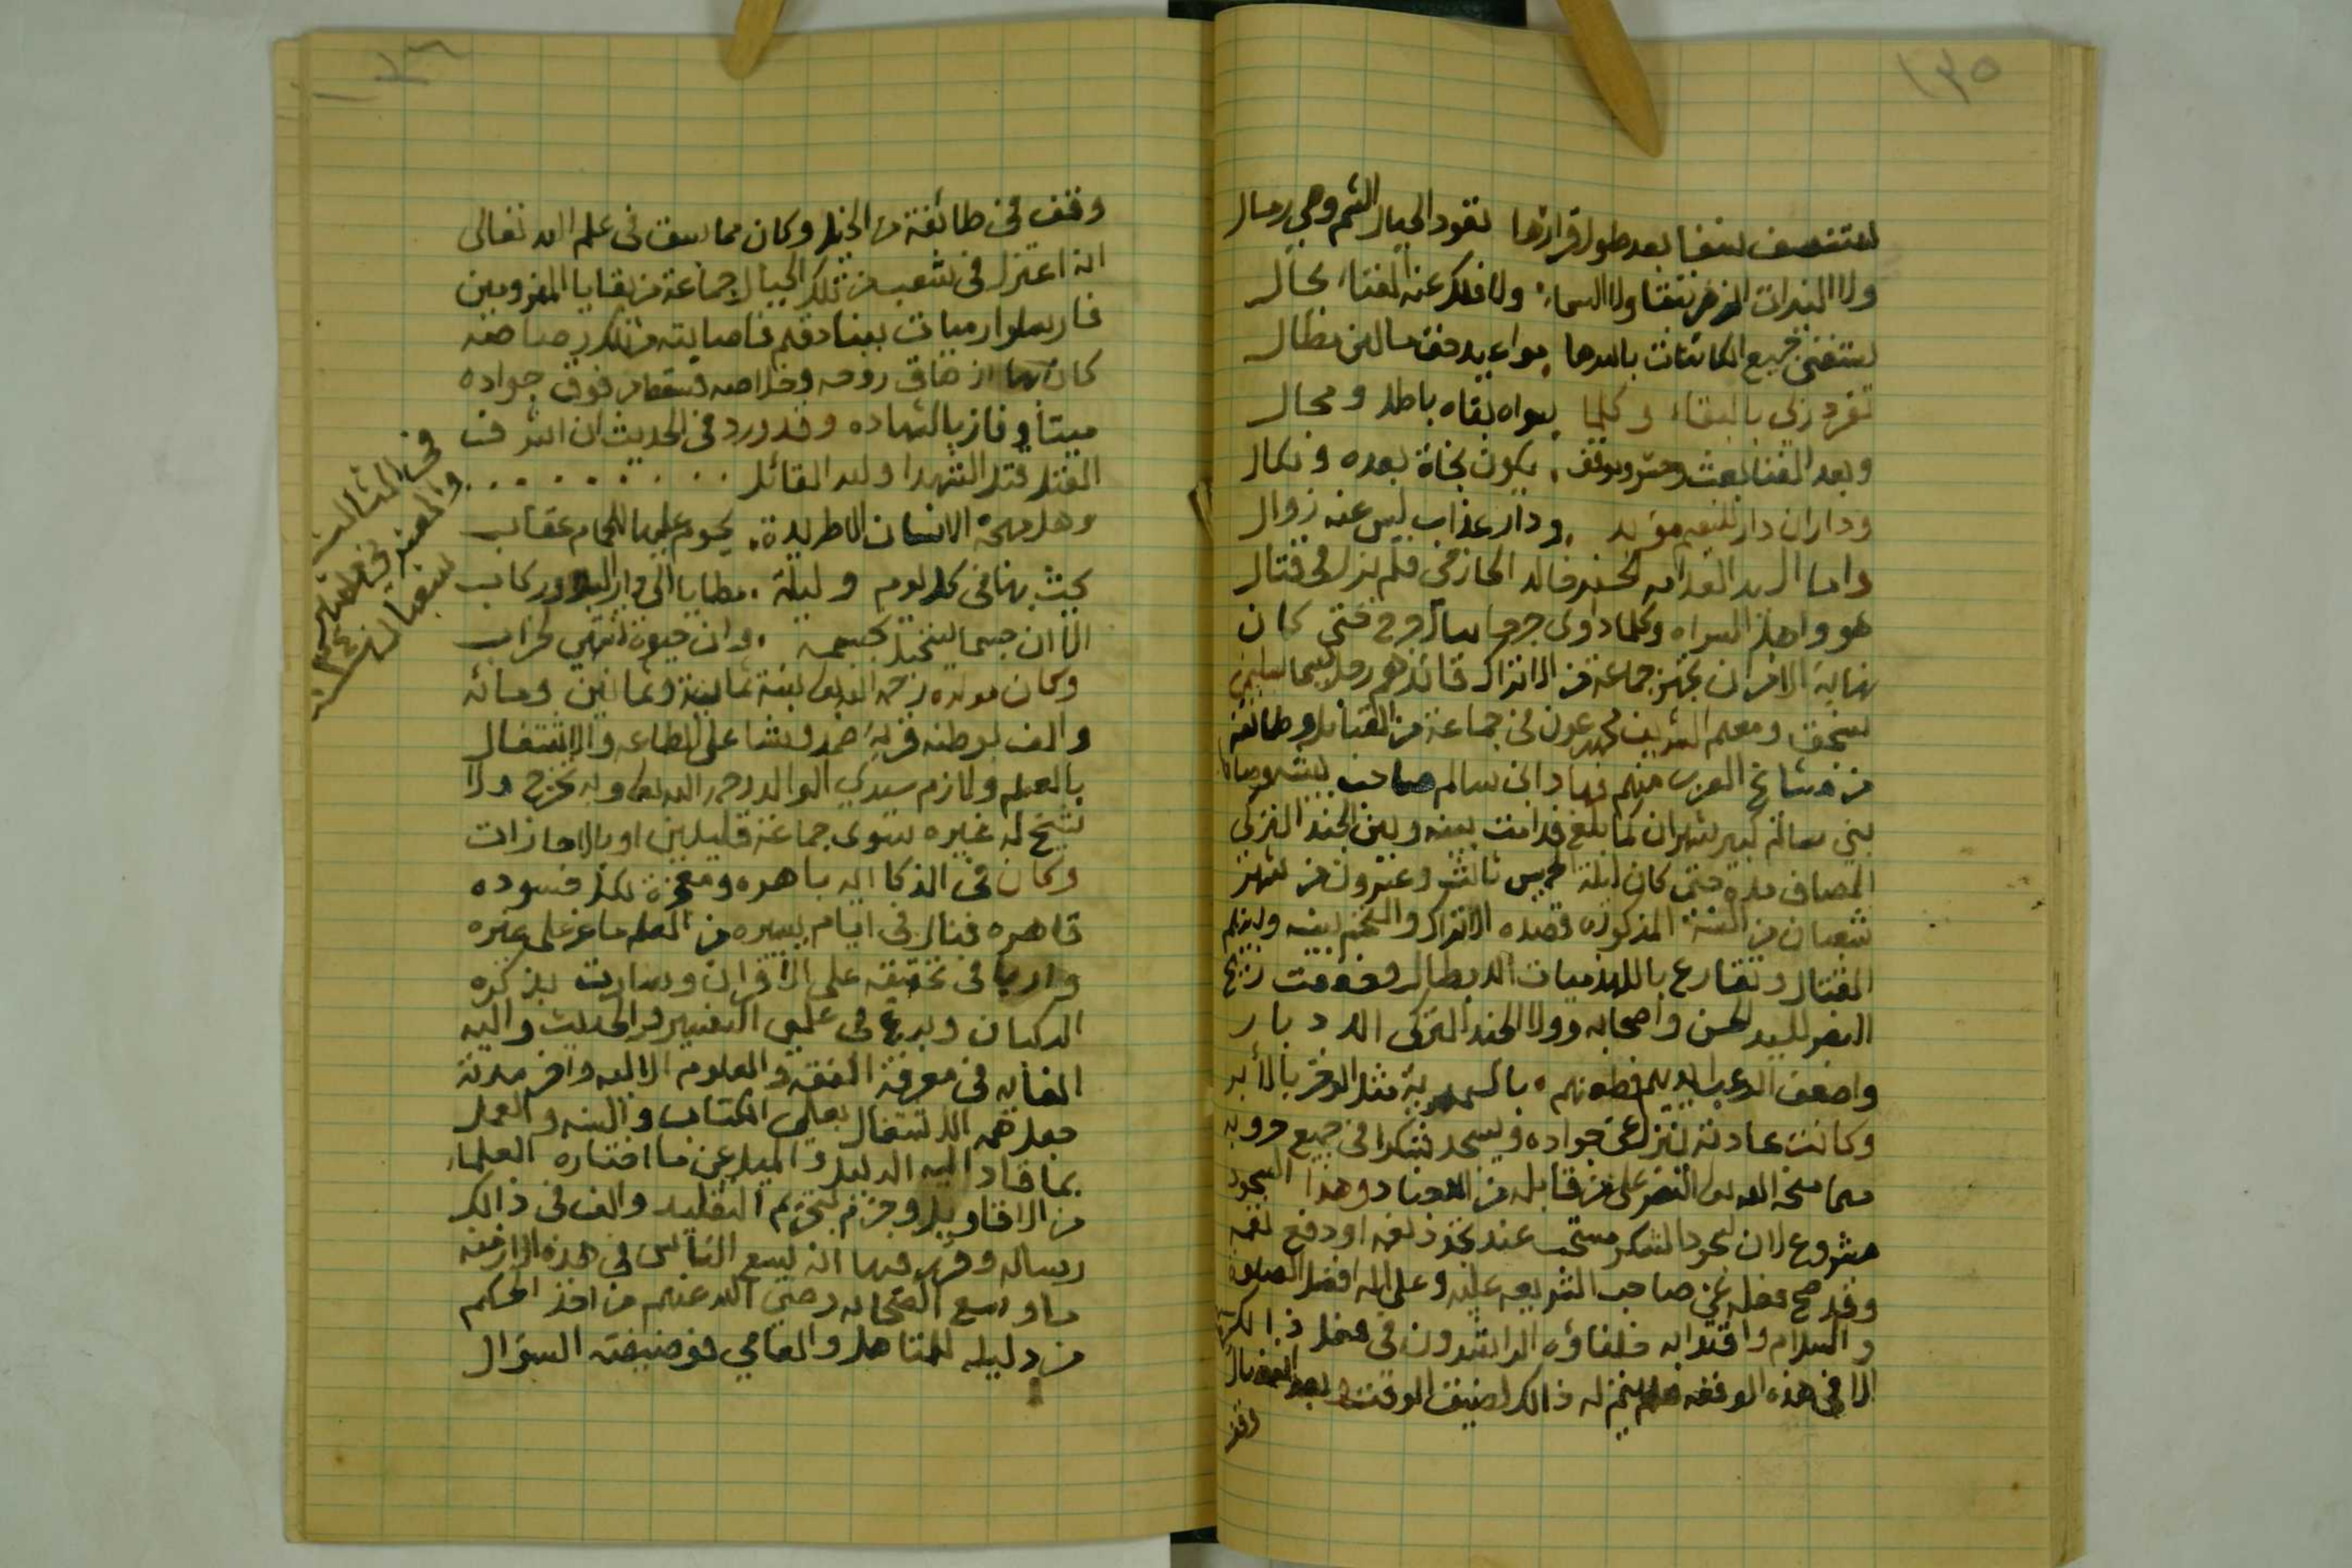 ١٣٥
ستنسف نسفا بعد طول قرارها تعود الجبال الشم وهي رمال
ولا النيرات الزهر تبقا ولا السماء ولا فلك عنه الفناء محال
ستفنى جميع الكائنات باسرها سواء يد حق ما لهن مطال
تفرد ربي بالبقاء وكلما سواه بقاه باطل ومحال
وبعد الفنا بعث وحشر وموقف يكون نجاة بعده ونكال
وداران دار للنعيم مؤبد ودار عذاب ليس عنه زوال
واما السيد العلامه الحسن خالد الحازمي فلم يزل في قتال
هو واهل السراه وكلما داوى جرحا سال جرح حتى كان
نهاية الامر ان تجهز جماعة من الاتراك قائدهم رجل يسما
سنجق ومعهم الشريف محمد عون في جماعة من القبايل وطائفة
من مشائخ العرب منهم فهاد ابن سالم صاحب بيشه وصاحب
بني سالم بشهران لما بلغ قد امت بينه وبين الجند التركي
المصاف مدة حتى كان ليلة الخميس ثالث وعشرون من شهر
شعبان من السنة المذكوره قصده الاتراك والتحم بينه وبينهم
القتال وتقارع باللهذميات الابطال وخفقت ريح
النصر للسيد الحسن واصحابه وولا الجند التركي الادبار
واضعف الرعب ايديهم فطعنهم بالسمهرية مثل الوخز بالأبر
وكانت عادته ينزل عن جواده ويسجد شكرا في جميع حروبه
مما منحه الله تعالى النصر على من قابله من الاجناد وهذا السجود
مشروع لان سجود الشكر مستحب عند تجدد نعمه او دفع نقمه
وقد صح فعله عن صاحب الشريعه عليه وعلى اله افضل الصلوة
والسلام واقتدا به خلفاؤه الراشدون في فعل ذالك
الا في هذه الوقعه فلم ينزله ذالك لضيق الوقت بعد القتال
وقد
١٣٦
وقف في طائفة من الخيل وكان مما سبق في علم الله تعالى
انه اعتزل في شعب من تلك الجبال جماعة من بقايا المهزومين
فارسلوا رميات ببنادقهم فاصابته من تلك رصاصه
كان بها ازهاق روحه وخلاصه فسقط من فوق جواده
ميتا وفاز بالشهاده وقد ورد في الحديث ان اشرف
القتل قتل الشهدا ولله القائل . . . . . . . . . .
وهل مهجة الانسان الا طريدة يحوم عليها للحمام عقاب
يحث بها في كل يوم وليلة مطايا الى دار البلا وركاب
الا ان جسما يستحيل كجسمه وان حيوة تنتهي لخراب
وكان مولده رحمه الله تعالى سنة ثمانية وثمانين ومائه
والف بوطنه قرية ضمد ونشا على الطاعه والاشتغال
بالعلم ولازم سيدي الوالد رحمه الله تعالى وبه تخرج ولا
شيخ له غيره سوى جماعة قليلين او بالاجازات
وكان في الذكا ايه باهره ومعجزة لكل حسوده
قاهره فنال في ايام يسيره من العلم ما عز على غيره
واربا في تحقيقه على الاقران وسارت بذكره
الركبان وبرع في علمي التفسير والحديث واليه
الغايه في معرفة الفقه والعلوم الاليه واخر مدته
جعل همه الاشتغال بعلمي الكتاب والسنه والعمل
بما قاد اليه الدليل والميل عن ما اختاره العلماء
من الاقاويل وجزم بتحريم التقليد والف في ذالك
رساله وقرر فيها انه يسع الناس في هذه الازمنه
ما وسع الصحابه رضي الله عنهم من اخذ الحكم
من دليله للمتاهل والعامي فوضيفته السؤال